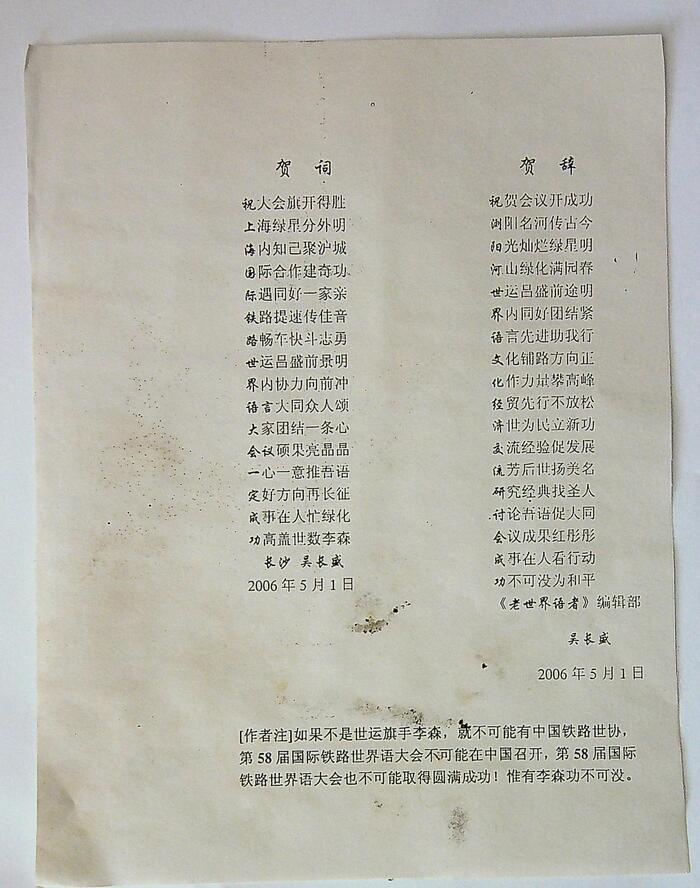 贺 词
祝大会旗开得胜
上海绿星分外明
海内知己聚沪城
国际合作建奇功
际遇同好一家亲
铁路提速传佳音
路畅车快斗志勇
世运吕盛前景明
界内协力向前冲
语言大同众人颂
大家团结一条心
会议硕果亮晶晶
一心一意推吾语
定好方向再长征
成事在人忙绿化
功高盖世数李森
长沙 吴长盛
2006 年 5 月 1 日
贺 辞
祝贺会议开成功
浏阳名河传古今
阳光灿烂绿星明
河山绿化满园春
世运吕盛前途明
界内同好团结紧
语言先进助我行
文化铺路方向正
化作力量攀高峰
经贸先行不放松
济世为民立新功
交流经验促发展
流芳后世扬美名
研究经典找圣人
讨论吾语促大同
会议成果红彤彤
成事在人看行动
功不可没为和平
《老世界语者》编辑部
吴长盛
2006 年 5 月 1 日
[作者注]如果不是世运旗手李森，就不可能有中国铁路世协，
第 58 届国际铁路世界语大会不可能在中国召开，第 58 届国际
铁路世界语大会也不可能取得圆满成功！惟有李森功不可没。